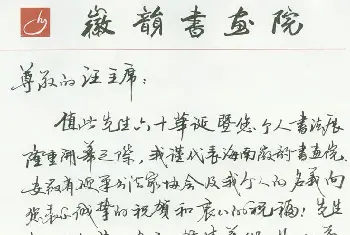 徽韵书画院
尊敬的汪主席：
值此先生六十华诞暨您个人书法展
隆重開幕之际，我谨代表海南徽韵书画院、
安徽省硬笔书法家协会及我个人的名義向
您表示诚挚的祝賀和衷心的祝福！先生